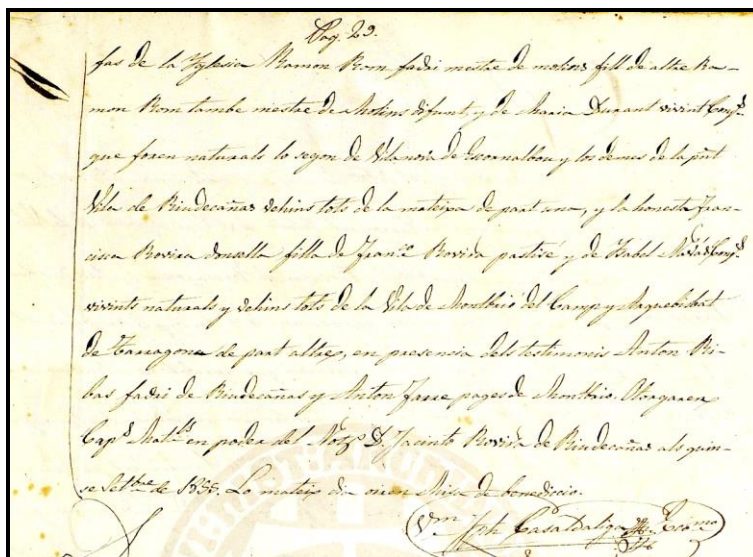 Pag. 29.
fas de la Yglesia Ramon Rom fadri mestre de molins fill de altre Ra-
mon Rom tambe mestre de Molins difunt, y de Maria Durant vivint Conjs.
que foren naturals lo segon de Vilanova de Escornalbou y los demes de la pnt
Vila de Riudecañas vehins tots de la mateixa de part una, y la honesta Fran-
cisca Rovira donsella filla de Franco Rovira pastisé y de Isabel Conjs.
vivints naturals y vehins tots de la Vila de Montbrió del Camp y Arquebisbat
de Tarragona de part altre, en presencia dels testimonis Anton Ri-
bas fadri de Riudecañas y Anton pages de Montbrio. Otorgaren
Caps. Matls. en poder del Noty. D. Jacinto Rovira de Riudecañas als quin-
se Setbre de Lo mateix dia oiren Missa de benediccio.
Jph Casaldaliga Ecómo